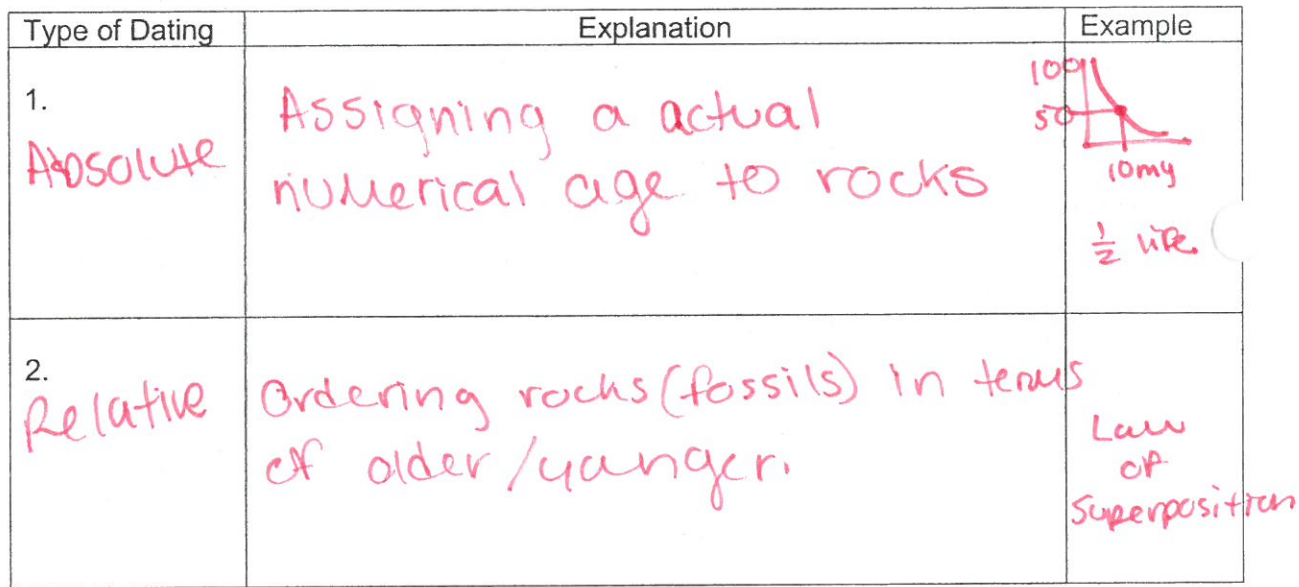 Type of Dating Explanation Example
1.
Absolute
Assigning a actual
numerical age to rocks
100
50
10my
½ life.
2.
Relative
Ordering rocks (fossils) in terms
of older/younger.
Law
of
Superposition